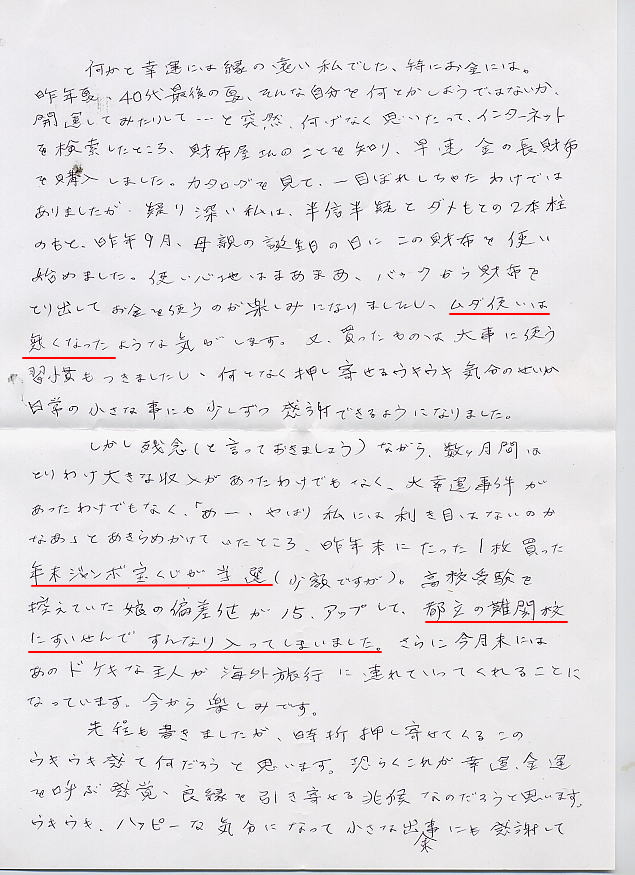 何かと幸運には縁の遠い私でした、特にお金には。
昨年夏、40代最後の夏、そんな自分を何とかしようではないか、
開運してみたりして…と突然、何げなく思いたって、インターネット
を検索したところ、財布屋さんのことを知り、早速金の長財布
を購入しました。カタログを見て、一目ぼれしちゃたわけでは
ありましたが、疑り深い私は、半信半疑とダメもとの2本柱
のもと、昨年9月、母親の誕生日の日にこの財布を使い
始めました。使い心地はまあまあ、バックから財布を
とり出してお金を使うのが楽しみになりましたし、ムダ使いは
無くなったような気がします。又、買ったものは大事に使う
習慣もつきましたし、何となく押し寄せるウキウキ気分のせいか
日常の小さな事にも少しずつ感謝できるようになりました。
しかし残念(と言っておきましょう)ながら、数ヶ月間は
とりわけ大きな収入があったわけでもなく、大幸運事件が
あったわけでもなく、「あー、やはり私には利き目はないのか
なあ」とあきらめかけていたところ、昨年末にたった1枚買った
年末ジャンボ宝くじが当選(少額ですが)。高校受験を
控えていた娘の偏差値が15、アップして、都立の難関校
にすいせんですんなり入ってしまいました。さらに今月末には
あのドケチな主人が海外旅行に連れていってくれることに
なっています。今から楽しみです。
先程も書きましたが、時折押し寄せてくるこの
ウキウキ感て何だろうと思います。恐らくこれが幸運、金運
を呼ぶ感覚、良縁を引き寄せる兆候なのだろうと思います。
ウキウキ、ハッピーな気分になって小さな出来事にも感謝して